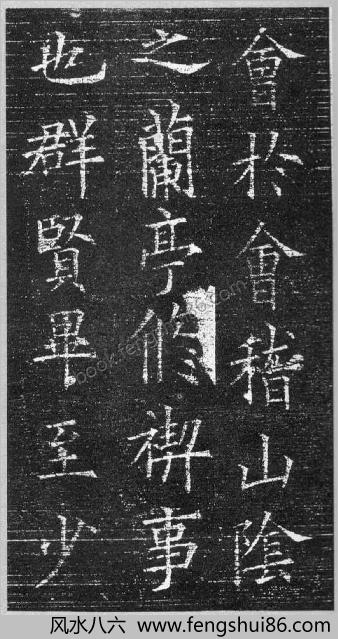 會於會稽山陰
之蘭亭修禊事
也群賢畢至少
風水八六 www.fengshui86.com